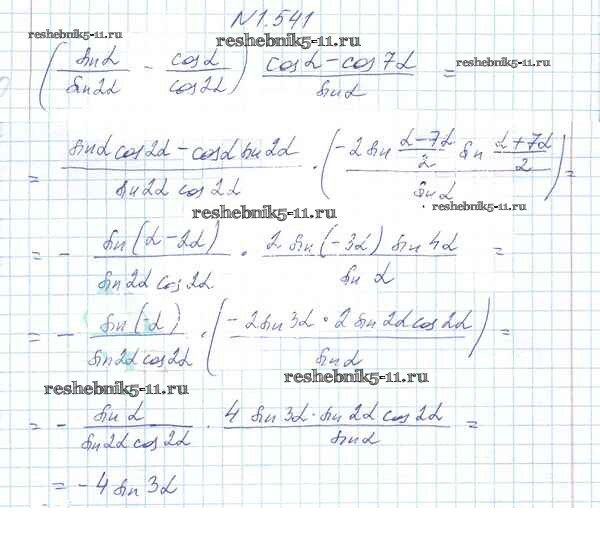 N 1.541
reshebnik5-11.ru
(sin α / sin 2α − cos α / cos 2α) (cos α − cos 7α) / sin α =
reshebnik5-11.ru
reshebnik5-11.ru
= (sin α cos 2α − cos α sin 2α) / (sin 2α cos 2α) · (−2 sin (α − 7α)/2 sin (α + 7α)/2 / sin α) =
reshebnik5-11.ru
reshebnik5-11.ru
= − sin (α − 2α) / (sin 2α cos 2α) · 2 sin (−3α) sin 4α / sin α =
= − sin (−α) / (sin 2α cos 2α) · (−2 sin 3α · 2 sin 2α cos 2α / sin α) =
reshebnik5-11.ru
reshebnik5-11.ru
= − sin α / (sin 2α cos 2α) · 4 sin 3α · sin 2α cos 2α / sin α =
= −4 sin 3α